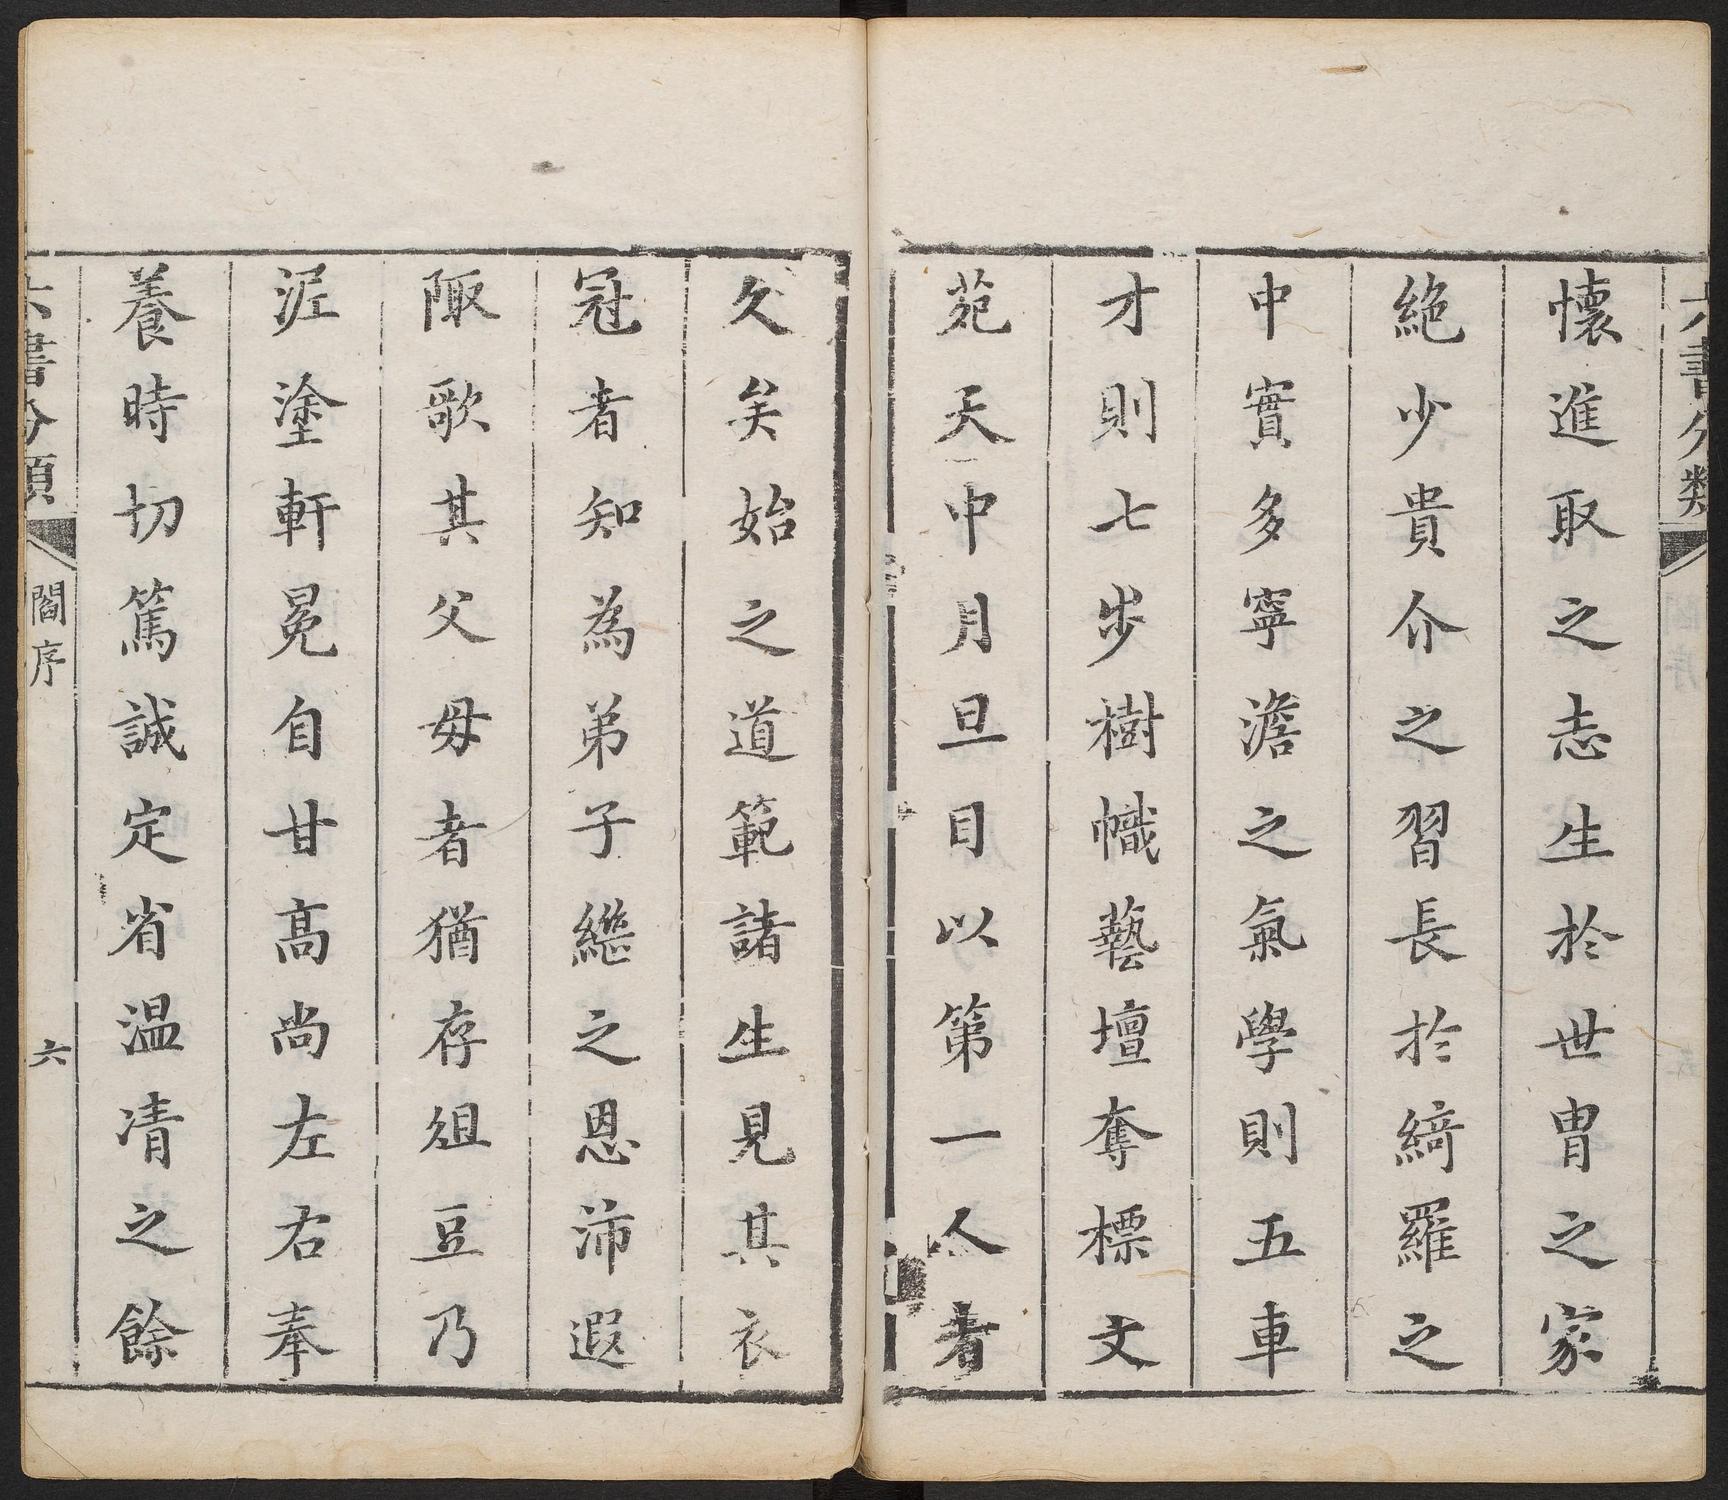 六書分類
懷進取之志生於世胄之家
絶少貴介之習長於綺羅之
中實多寧澹之氣學則五車
才則七步樹幟藝壇奪標文
苑天中月旦目以第一人者
久矣始之道範諸生見其衣
冠者知為弟子繼之恩沛遐
陬歌其父毋者猶存俎豆乃
泥塗軒冕自甘高尚左右奉
養時切篤誠定省温凊之餘
六書分類
閻序
六